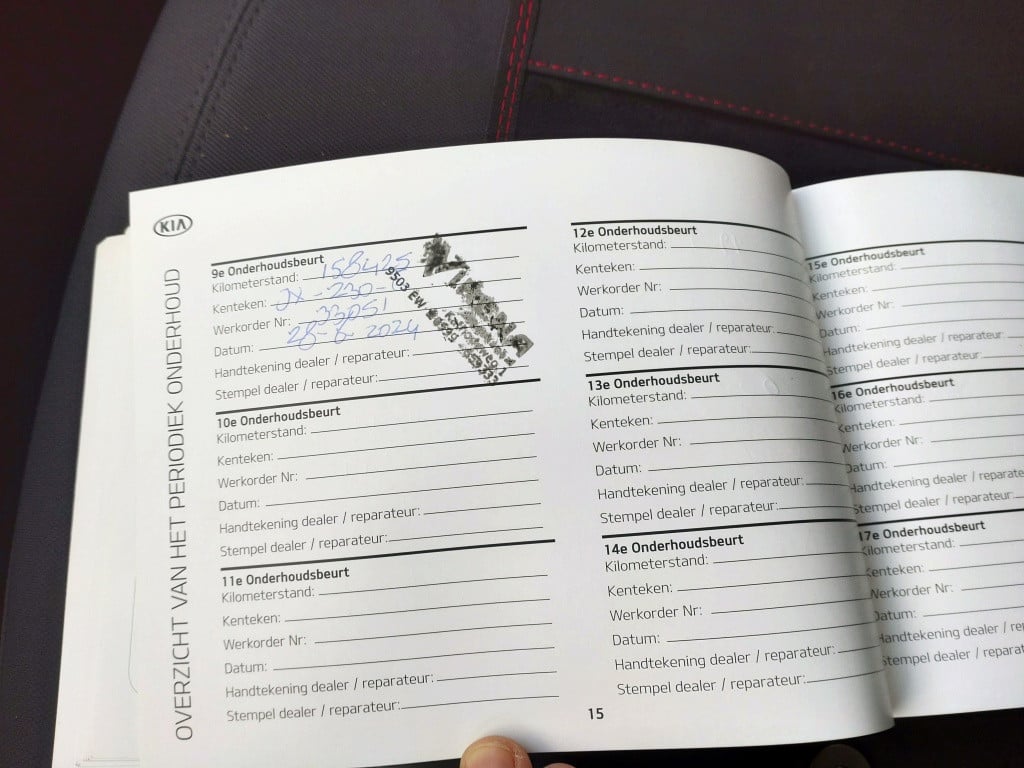 KIA
OVERZICHT VAN HET PERIODIEK ONDERHOUD
9e Onderhoudsbeurt
Kilometerstand: 158425
Kenteken:
Werkorder Nr: 33051
Datum: 28-6-2024
Handtekening dealer / reparateur:
Stempel dealer / reparateur:
9503 EW
10e Onderhoudsbeurt
Kilometerstand:
Kenteken:
Werkorder Nr:
Datum:
Handtekening dealer / reparateur:
Stempel dealer / reparateur:
11e Onderhoudsbeurt
Kilometerstand:
Kenteken:
Werkorder Nr:
Datum:
Handtekening dealer / reparateur:
Stempel dealer / reparateur:
12e Onderhoudsbeurt
Kilometerstand:
Kenteken:
Werkorder Nr:
Datum:
Handtekening dealer / reparateur:
Stempel dealer / reparateur:
13e Onderhoudsbeurt
Kilometerstand:
Kenteken:
Werkorder Nr:
Datum:
Handtekening dealer / reparateur:
Stempel dealer / reparateur:
14e Onderhoudsbeurt
Kilometerstand:
Kenteken:
Werkorder Nr:
Datum:
Handtekening dealer / reparateur:
Stempel dealer / reparateur:
15
15e Onderhoudsbeurt
Kilometerstand:
Kenteken:
Werkorder Nr:
Datum:
Handtekening dealer / reparateur:
Stempel dealer / reparateur:
16e Onderhoudsbeurt
Kilometerstand:
Kenteken:
Werkorder Nr:
Datum:
Handtekening dealer / reparate
Stempel dealer / reparateur:
17e Onderhoudsbeurt
Kilometerstand:
Kenteken:
Werkorder Nr:
Datum:
Handtekening dealer / re
Stempel dealer / reparat